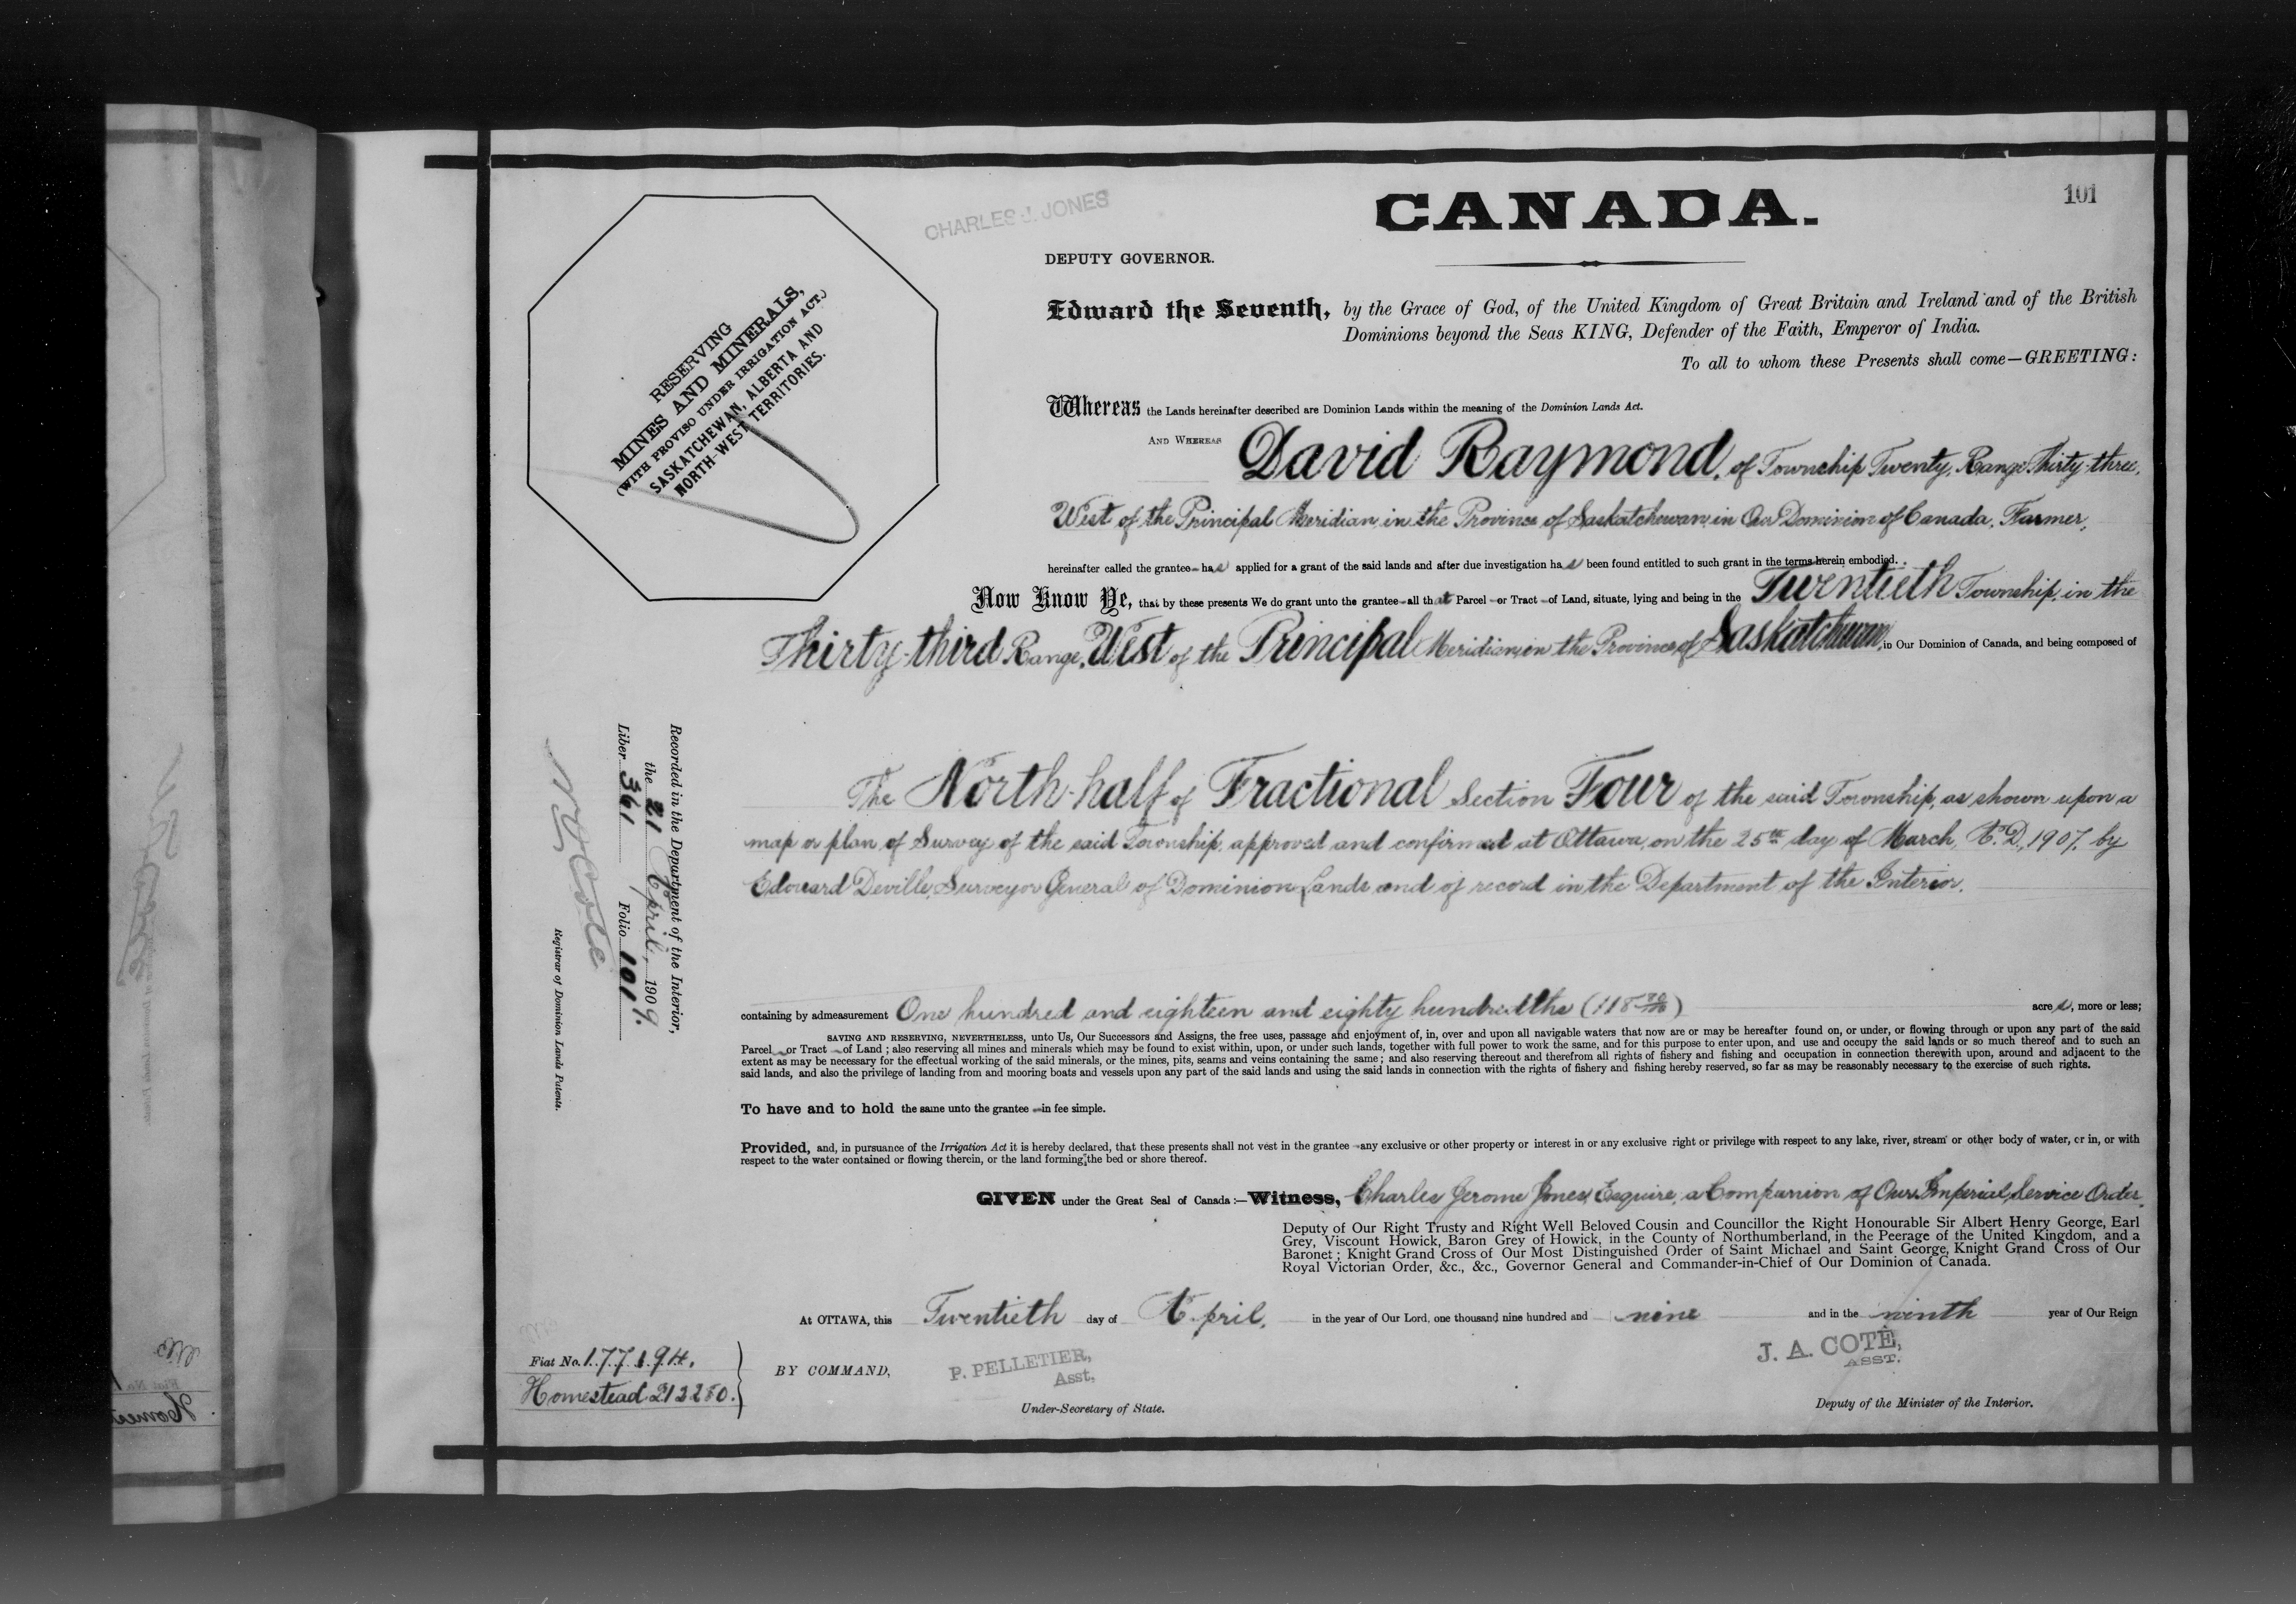 CANADA.
101
CHARLES J. JONES
DEPUTY GOVERNOR.
RESERVING
MINES AND MINERALS,
(WITH PROVISO UNDER IRRIGATION ACT.)
SASKATCHEWAN, ALBERTA AND
NORTH-WEST TERRITORIES.
Edward the Seventh, by the Grace of God, of the United Kingdom of Great Britain and Ireland and of the British
Dominions beyond the Seas KING, Defender of the Faith, Emperor of India.
To all to whom these Presents shall come—GREETING:
Whereas the Lands hereinafter described are Dominion Lands within the meaning of the Dominion Lands Act.
AND WHEREAS David Raymond, of Township Twenty, Range Thirty-three,
West of the Principal Meridian, in the Province of Saskatchewan, in Our Dominion of Canada, Farmer,
hereinafter called the grantee has applied for a grant of the said lands and after due investigation has been found entitled to such grant in the terms herein embodied.
Now Know Ye, that by these presents We do grant unto the grantee all that Parcel or Tract of Land, situate, lying and being in the Twentieth Township, in the
Thirty-third Range, West of the Principal Meridian, in the Province of Saskatchewan, in Our Dominion of Canada, and being composed of
The North-half of Fractional Section Four of the said Township, as shown upon a
map or plan of Survey of the said Township, approved and confirmed at Ottawa, on the 25th day of March, A.D. 1907, by
Edouard Deville, Surveyor General of Dominion Lands and of record in the Department of the Interior.
containing by admeasurement One hundred and eighteen and eighty hundredths (118 80/100) acres, more or less;
SAVING AND RESERVING, NEVERTHELESS, unto Us, Our Successors and Assigns, the free uses, passage and enjoyment of, in, over and upon all navigable waters that now are or may be hereafter found on, or under, or flowing through or upon any part of the said
Parcel or Tract of Land; also reserving all mines and minerals which may be found to exist within, upon, or under such lands, together with full power to work the same, and for this purpose to enter upon, and use and occupy the said lands or so much thereof and to such an
extent as may be necessary for the effectual working of the said minerals, or the mines, pits, seams and veins containing the same; and also reserving thereout and therefrom all rights of fishery and fishing and occupation in connection therewith upon, around and adjacent to the
said lands, and also the privilege of landing from and mooring boats and vessels upon any part of the said lands and using the said lands in connection with the rights of fishery and fishing hereby reserved, so far as may be reasonably necessary to the exercise of such rights.
To have and to hold the same unto the grantee in fee simple.
Provided, and, in pursuance of the Irrigation Act it is hereby declared, that these presents shall not vest in the grantee any exclusive or other property or interest in or any exclusive right or privilege with respect to any lake, river, stream or other body of water, or in, or with
respect to the water contained or flowing therein, or the land forming the bed or shore thereof.
GIVEN under the Great Seal of Canada:—Witness, Charles Jerome Jones, Esquire, a Companion of Our Imperial Service Order,
Deputy of Our Right Trusty and Right Well Beloved Cousin and Councillor the Right Honourable Sir Albert Henry George, Earl
Grey, Viscount Howick, Baron Grey of Howick, in the County of Northumberland, in the Peerage of the United Kingdom, and a
Baronet; Knight Grand Cross of Our Most Distinguished Order of Saint Michael and Saint George, Knight Grand Cross of Our
Royal Victorian Order, &c., &c., Governor General and Commander-in-Chief of Our Dominion of Canada.
At OTTAWA, this Twentieth day of April, in the year of Our Lord, one thousand nine hundred and nine and in the ninth year of Our Reign
BY COMMAND,
P. PELLETIER,
Asst.
Under-Secretary of State.
J. A. COTÉ,
ASST.
Deputy of the Minister of the Interior.
Fiat No. 177194.
Homestead 212280.
Recorded in the Department of the Interior,
the 21 April, 1909.
Liber 361 Folio 101
N O Coté
Registrar of Dominion Lands Patents.